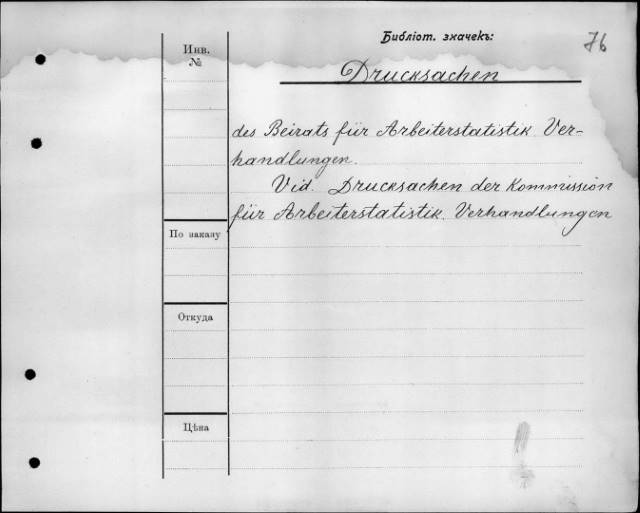 Библіот. значекъ:
76
Инв.
№
Drucksachen
des Beirats für Arbeiterstatistik. Ver-
handlungen.
Vid. Drucksachen der Kommission
für Arbeiterstatistik. Verhandlungen
По заказу
Откуда
Цѣна